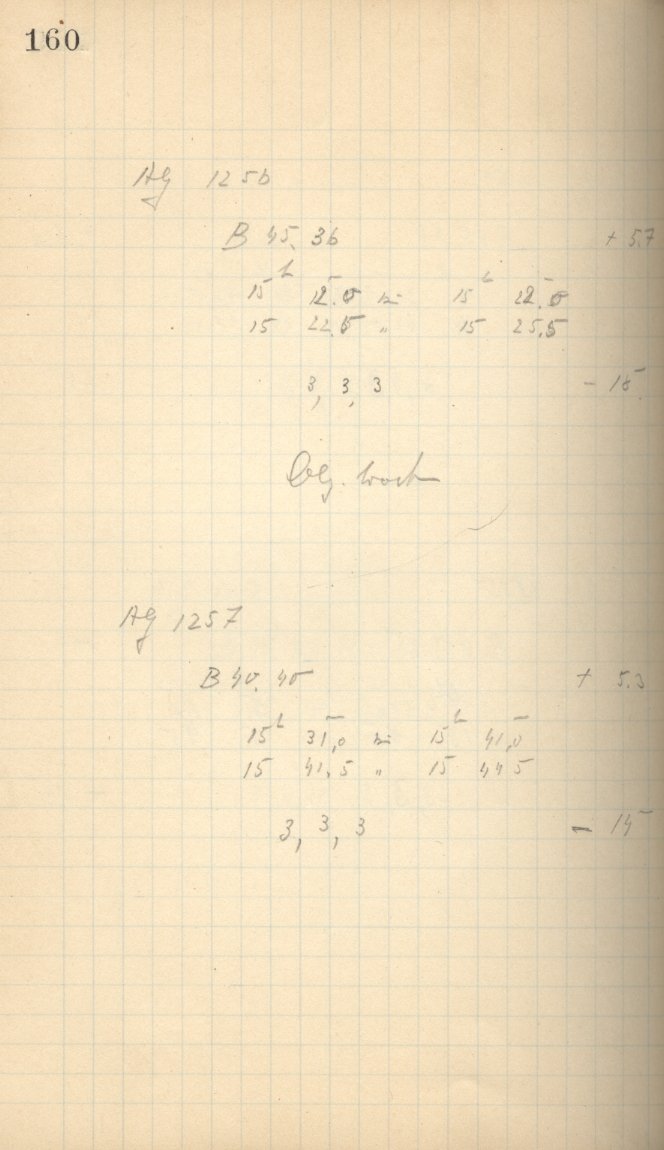 160
AG 1256
B 45. 36 + 5.7
15ʰ 12.0 bis 15ʰ 22.0
15 22.5 „ 15 25.5
3, 3, 3 - 15
Obj.
AG 1257
B 40. 40 + 5.3
15ʰ 31,0 bis 15ʰ 41,0
15 41.5 „ 15 44 5
3, 3, 3 - 15